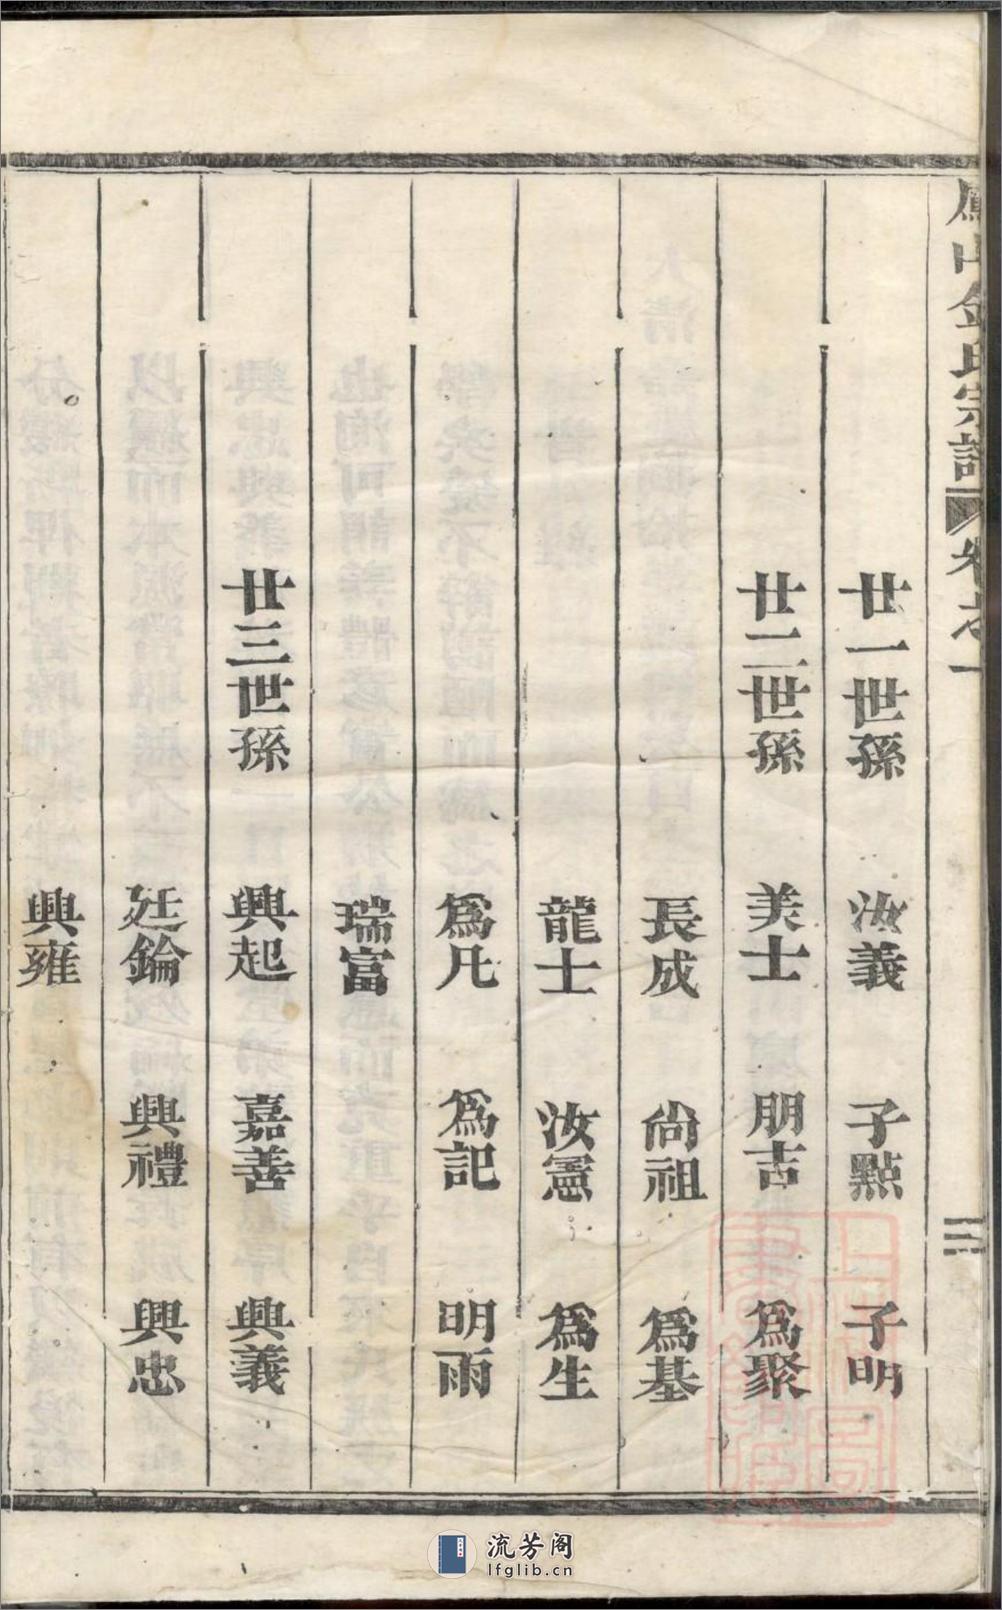 鳳山金氏宗譜 卷之一 三
廿一世孫 汝義 子點 子明
廿二世孫 美士 朋吉 爲聚
長成 尙祖 爲基
龍士 汝憲 爲生
爲凡 爲記 明雨
瑞富
廿三世孫 興起 嘉善 興義
廷錀 興禮 興忠
興雍
流芳阁
lfglib.cn